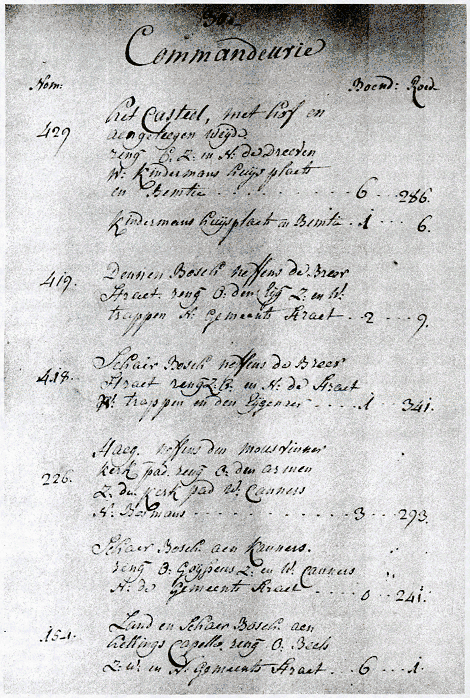 Commandeurie
Nom: Boend: Roed
429 het Casteel, met hof en
aengeleegen weyde
reng O. Z. en N. de Dreeven
W. Kindermans huys plaets
en Bemtie 6 286.
Kindermans huysplaets en Bemtie 1 6.
419. Dennen Bosch neffens de Breer
Straet reng O. den Z. en W.
trappen N. Gemeente Straet 2 9.
418. Schaer Bosch neffens de Breer
Straet reng Z. O. en N. de Straet
W. trappen en den Eygenaer 1 341.
226. Haeg neffens den
kerk pad reng O. den armen
Z. den kerk pad W. Canners
N. Bormans 3 293.
Schaer Bosch aen Canners.
reng O. Goyvens Z. en W. Canners
N. de Gemeente Straet 0 241.
151. Land en Schaer Bosch aen
hellings Capelle, reng O. Beels
Z. W. en N. Gemeente Straet 6 1.